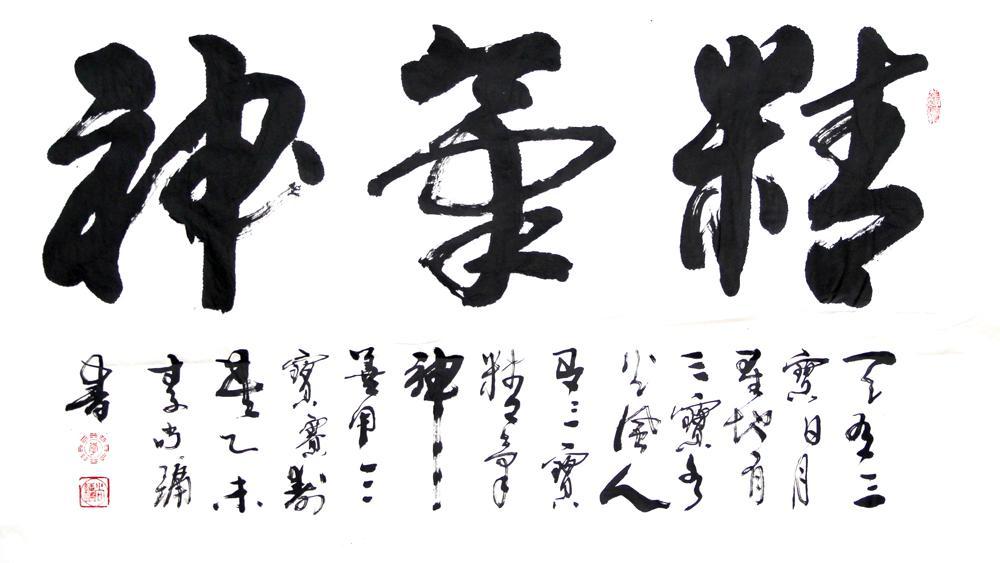 精氣神
天有三
寶日月
星地有
三寶水
火風人
有三寶
精氣
神
善用三
寶
乙未
書